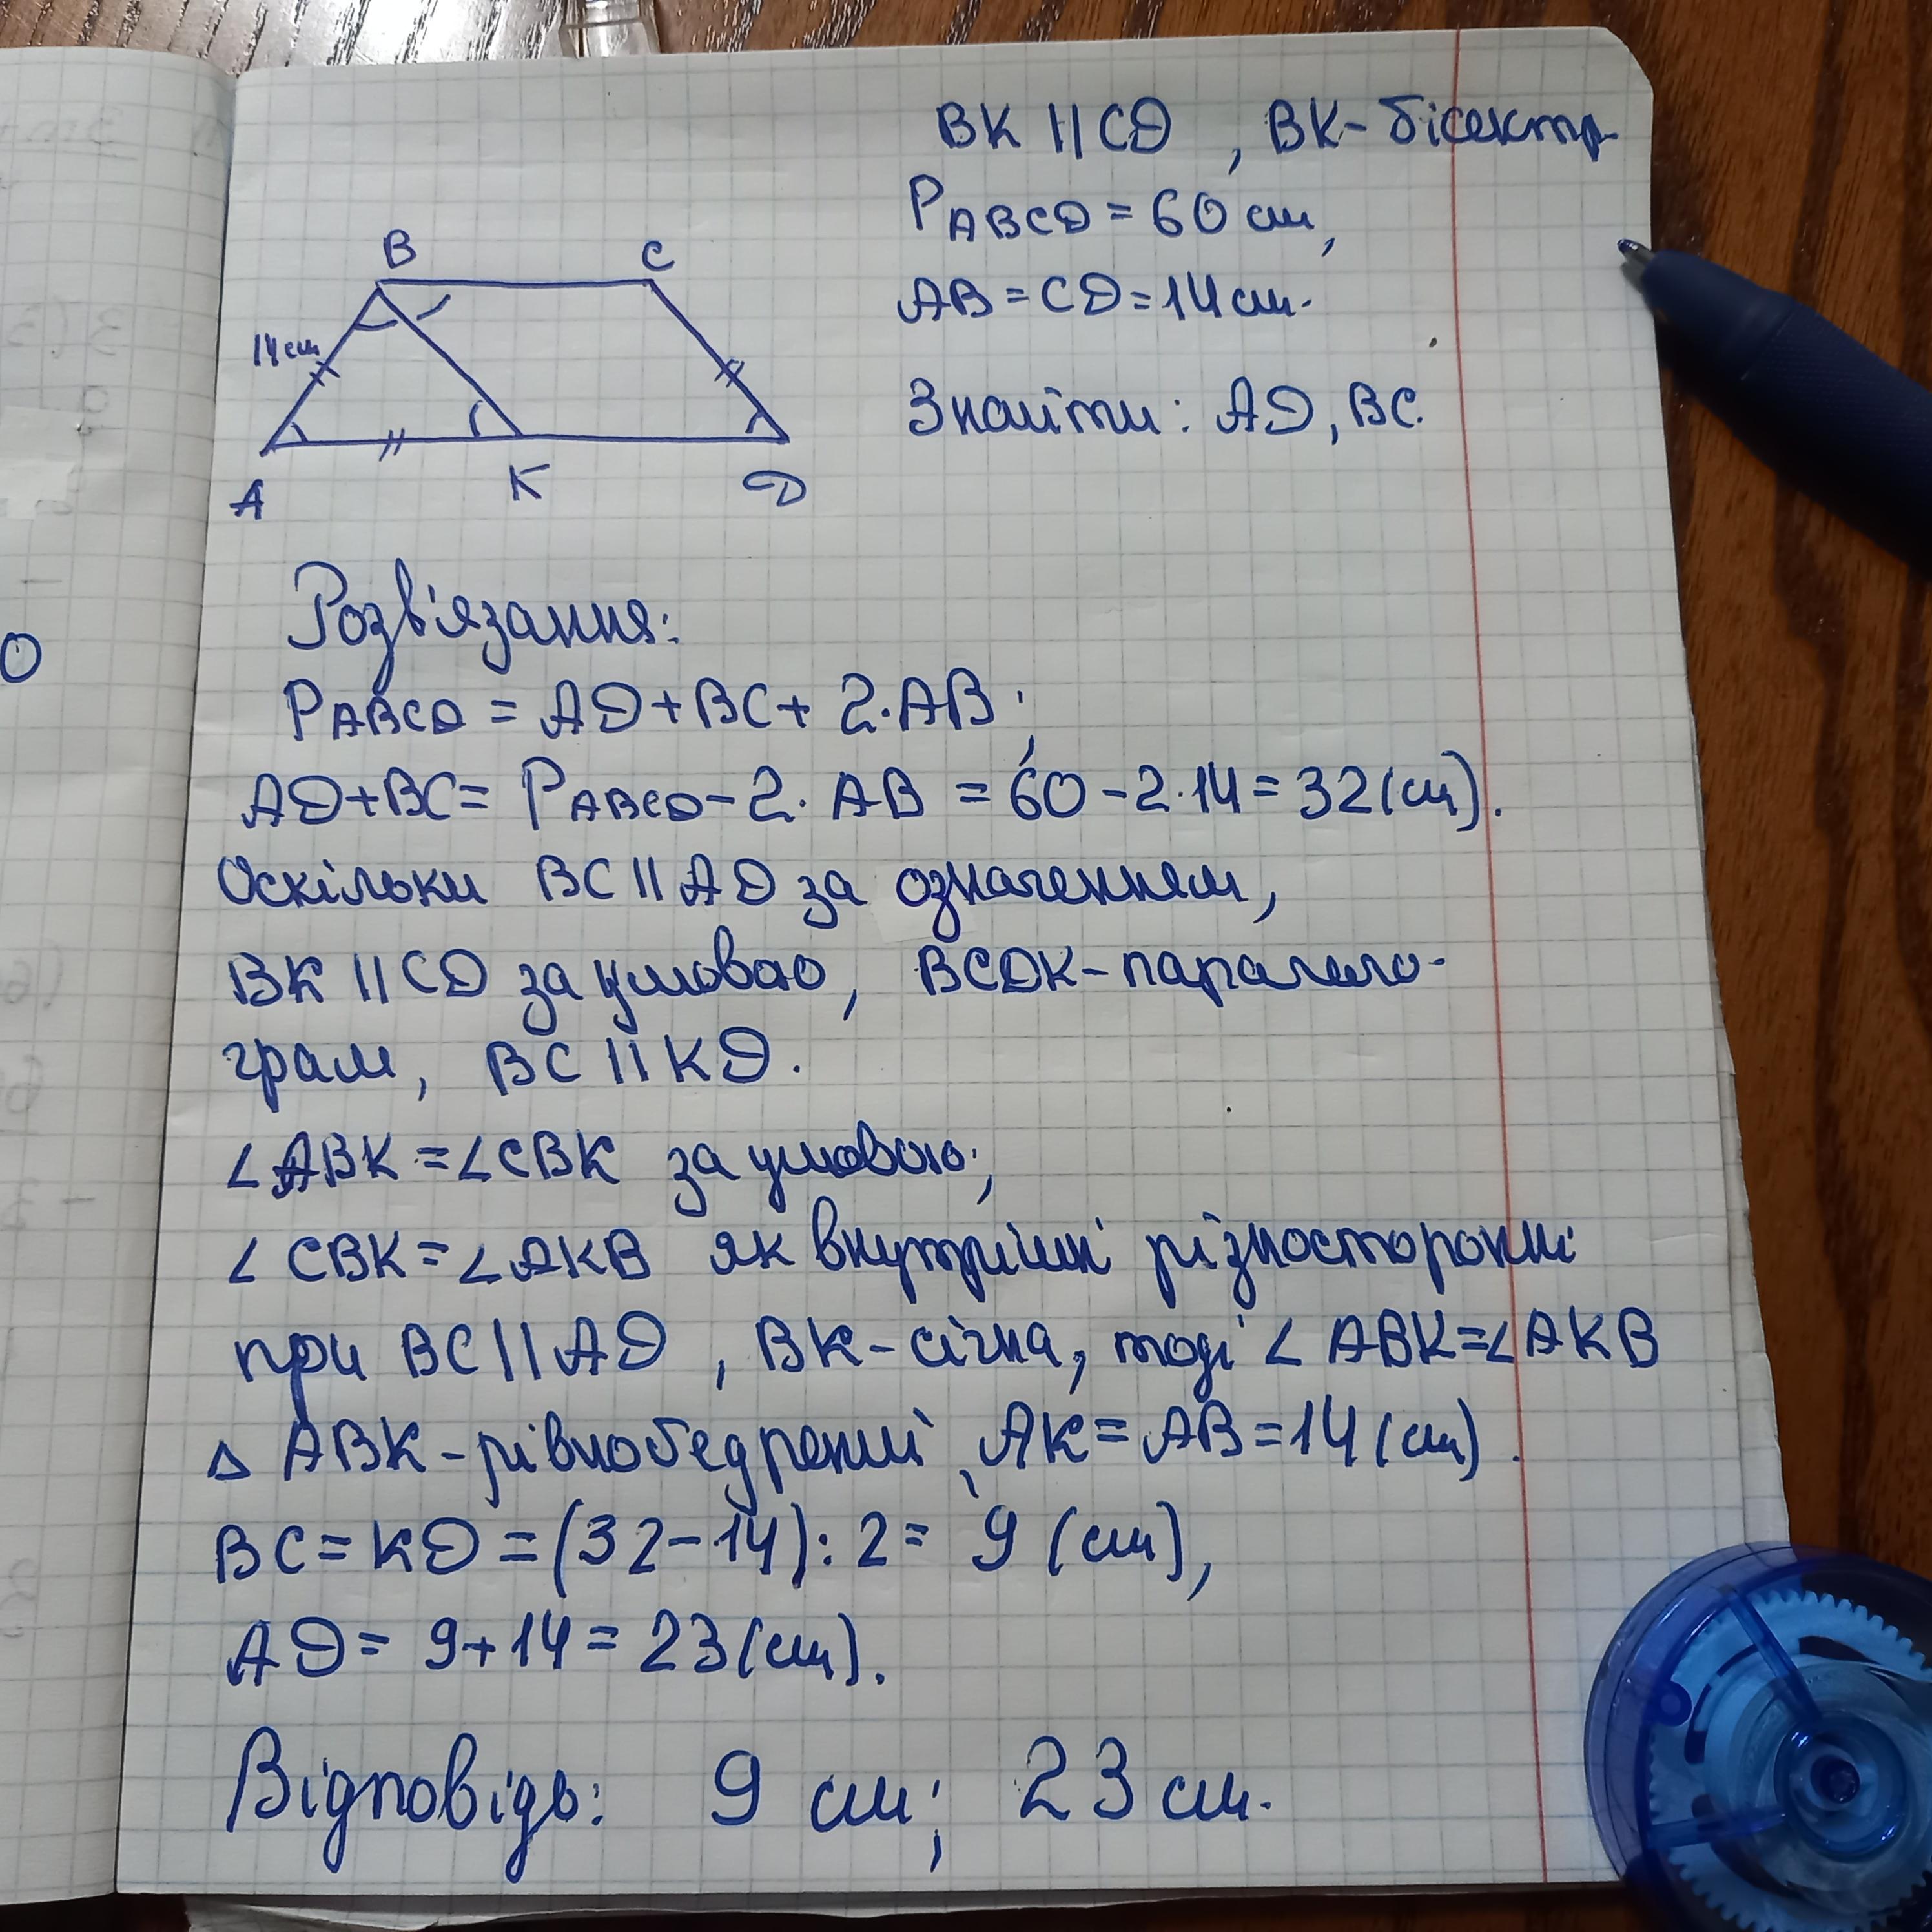 BK || CD, BK - бісектр.
P ABCD = 60 см,
AB = CD = 14 см.
Знайти: AD, BC.
B C
14 см
A K D
Розв'язання:
P ABCD = AD + BC + 2·AB;
AD + BC = P ABCD - 2·AB = 60 - 2·14 = 32 (см).
Оскільки BC || AD за означенням,
BK || CD за умовою, BCDK - парале­ло-
грам, BC || KD.
∠ABK = ∠CBK за умовою;
∠CBK = ∠AKB як внутрішні різносторонні
при BC || AD, BK - січна, тоді ∠ABK = ∠AKB
△ ABK - рівнобедрений, AK = AB = 14 (см).
BC = KD = (32 - 14) : 2 = 9 (см),
AD = 9 + 14 = 23 (см).
Відповідь: 9 см; 23 см.